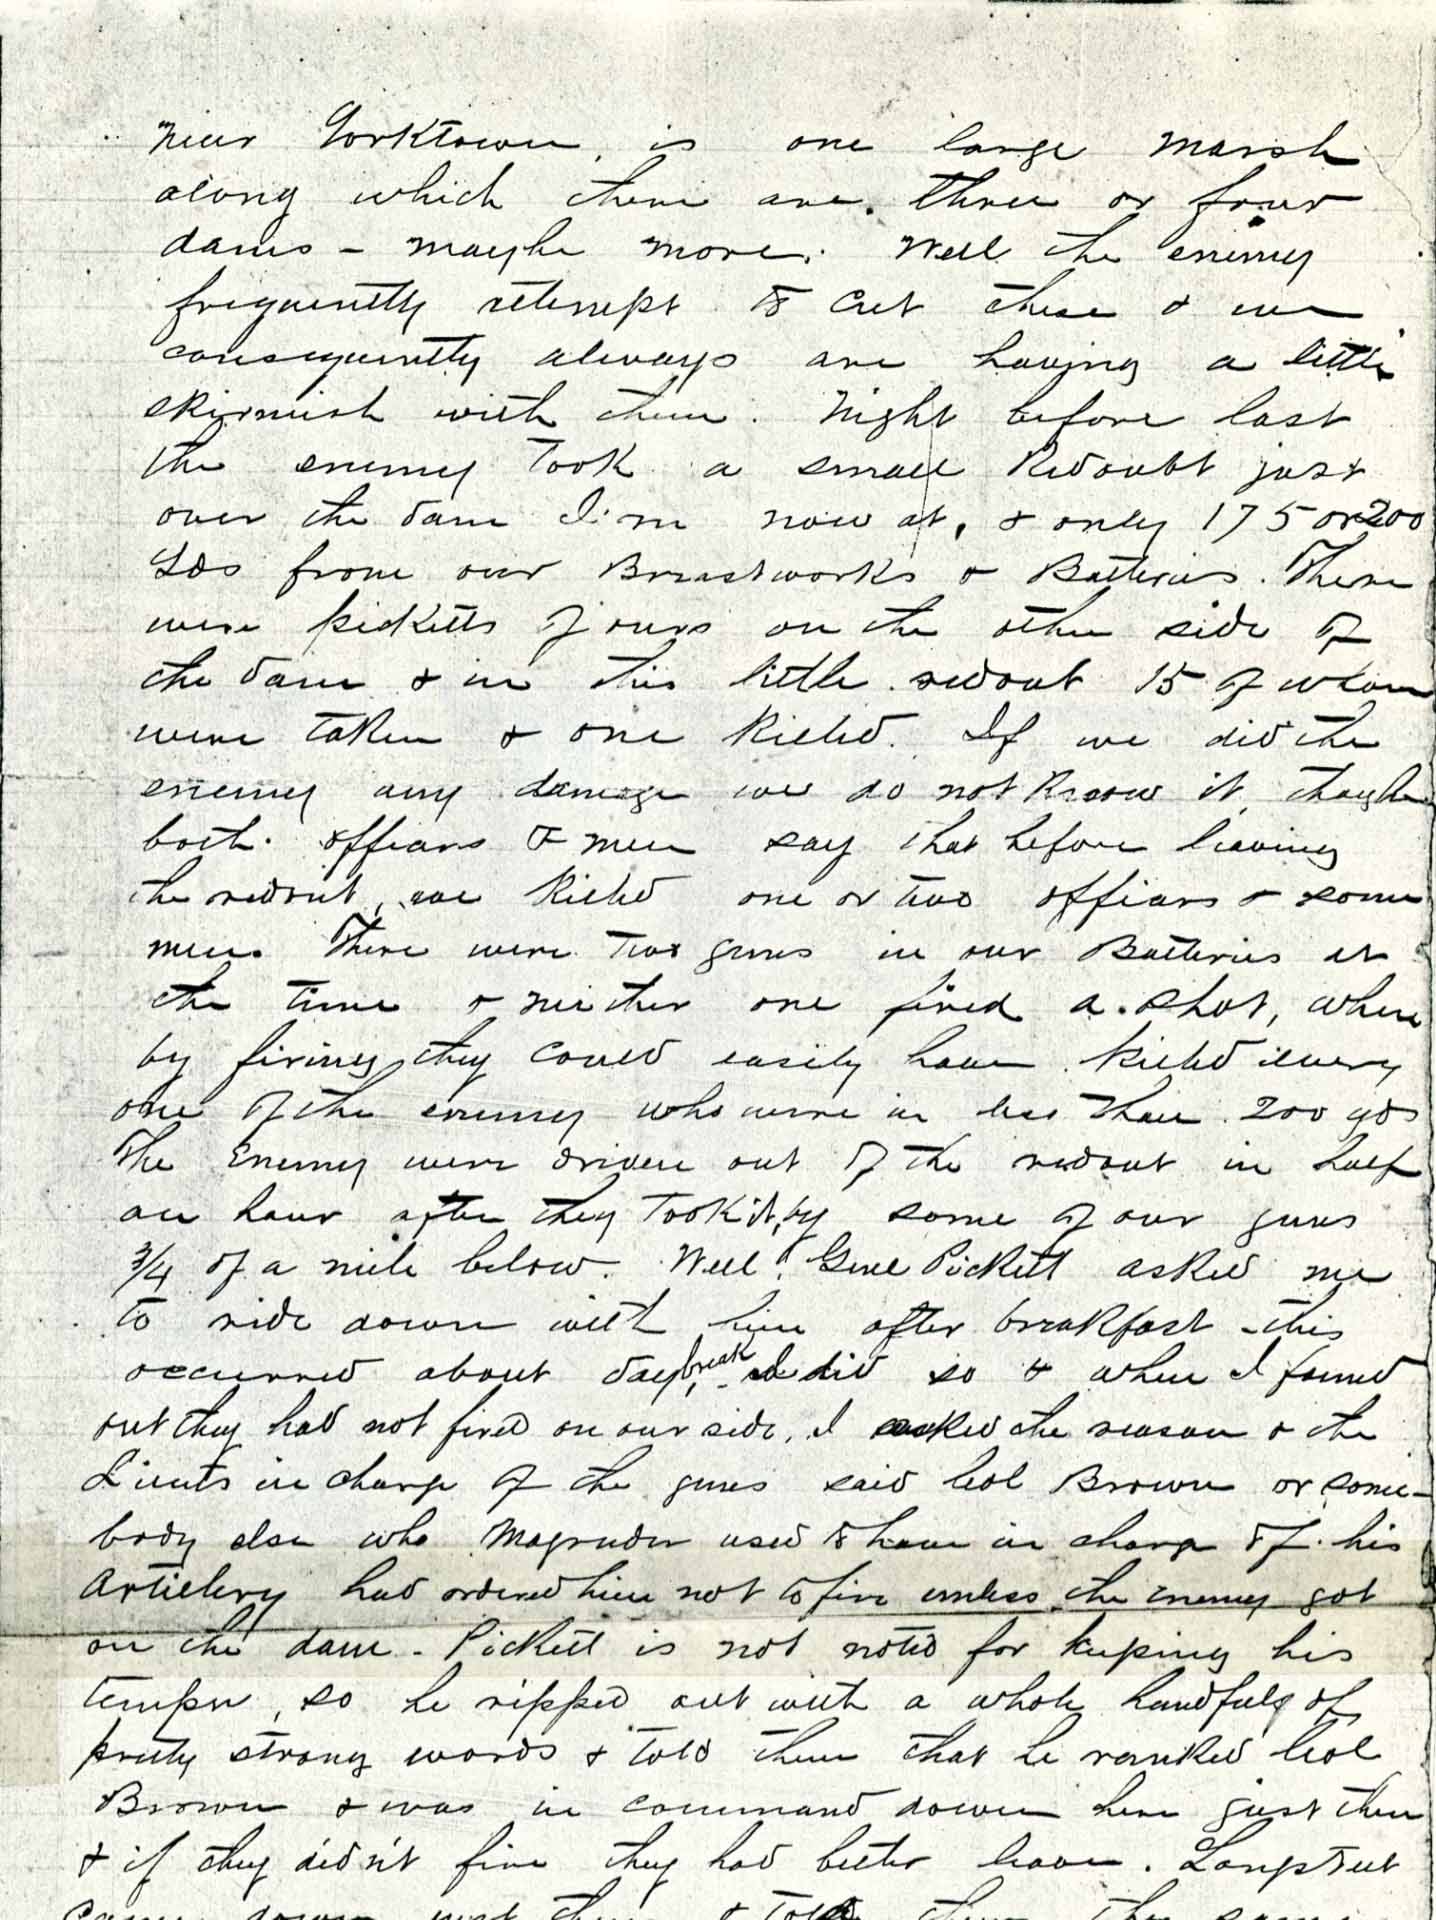 near Yorktown, is one large marsh
along which there are three or four
dams - maybe more. Well the enemy
frequently attempt to cut these & we
consequently always are having a little
skirmish with them. Night before last
the enemy took a small Redoubt just
over the dam I'm now at, & only 175 or 200
yds from our Breastworks & Batteries. There
were picketts of ours on the other side of
the dam & in this little redout 15 of whom
were taken & one killed. If we did the
enemy any damage we do not know it, though
both officers & men say that before leaving
the redout, we killed one or two officers & some
men. There were two guns in our Batteries at
the time & neither one fired a shot, where
by firing they could easily have killed every
one of the enemy who were in less than 200 yds
The Enemy were driven out of the redout in half
an hour after they took it, by some of our guns
3/4 of a mile below. Well! Genl Pickett asked me
to ride down with him after breakfast - this
occurred about daybreak, - I did so & when I found
out they had not fired on our side, I asked the reason & the
Lieuts in charge of the guns said Col Brown or some-
body else who Magruder used to have in charge of his
Artillery had ordered him not to fire unless the enemy got
on the dam - Pickett is not noted for keeping his
temper, so he ripped out with a whole handfull of
pretty strong words & told them that he ranked Col
Brown & was in command down here just then
& if they didn't fire they had better leave. Longstreet
came down just then & told them the same